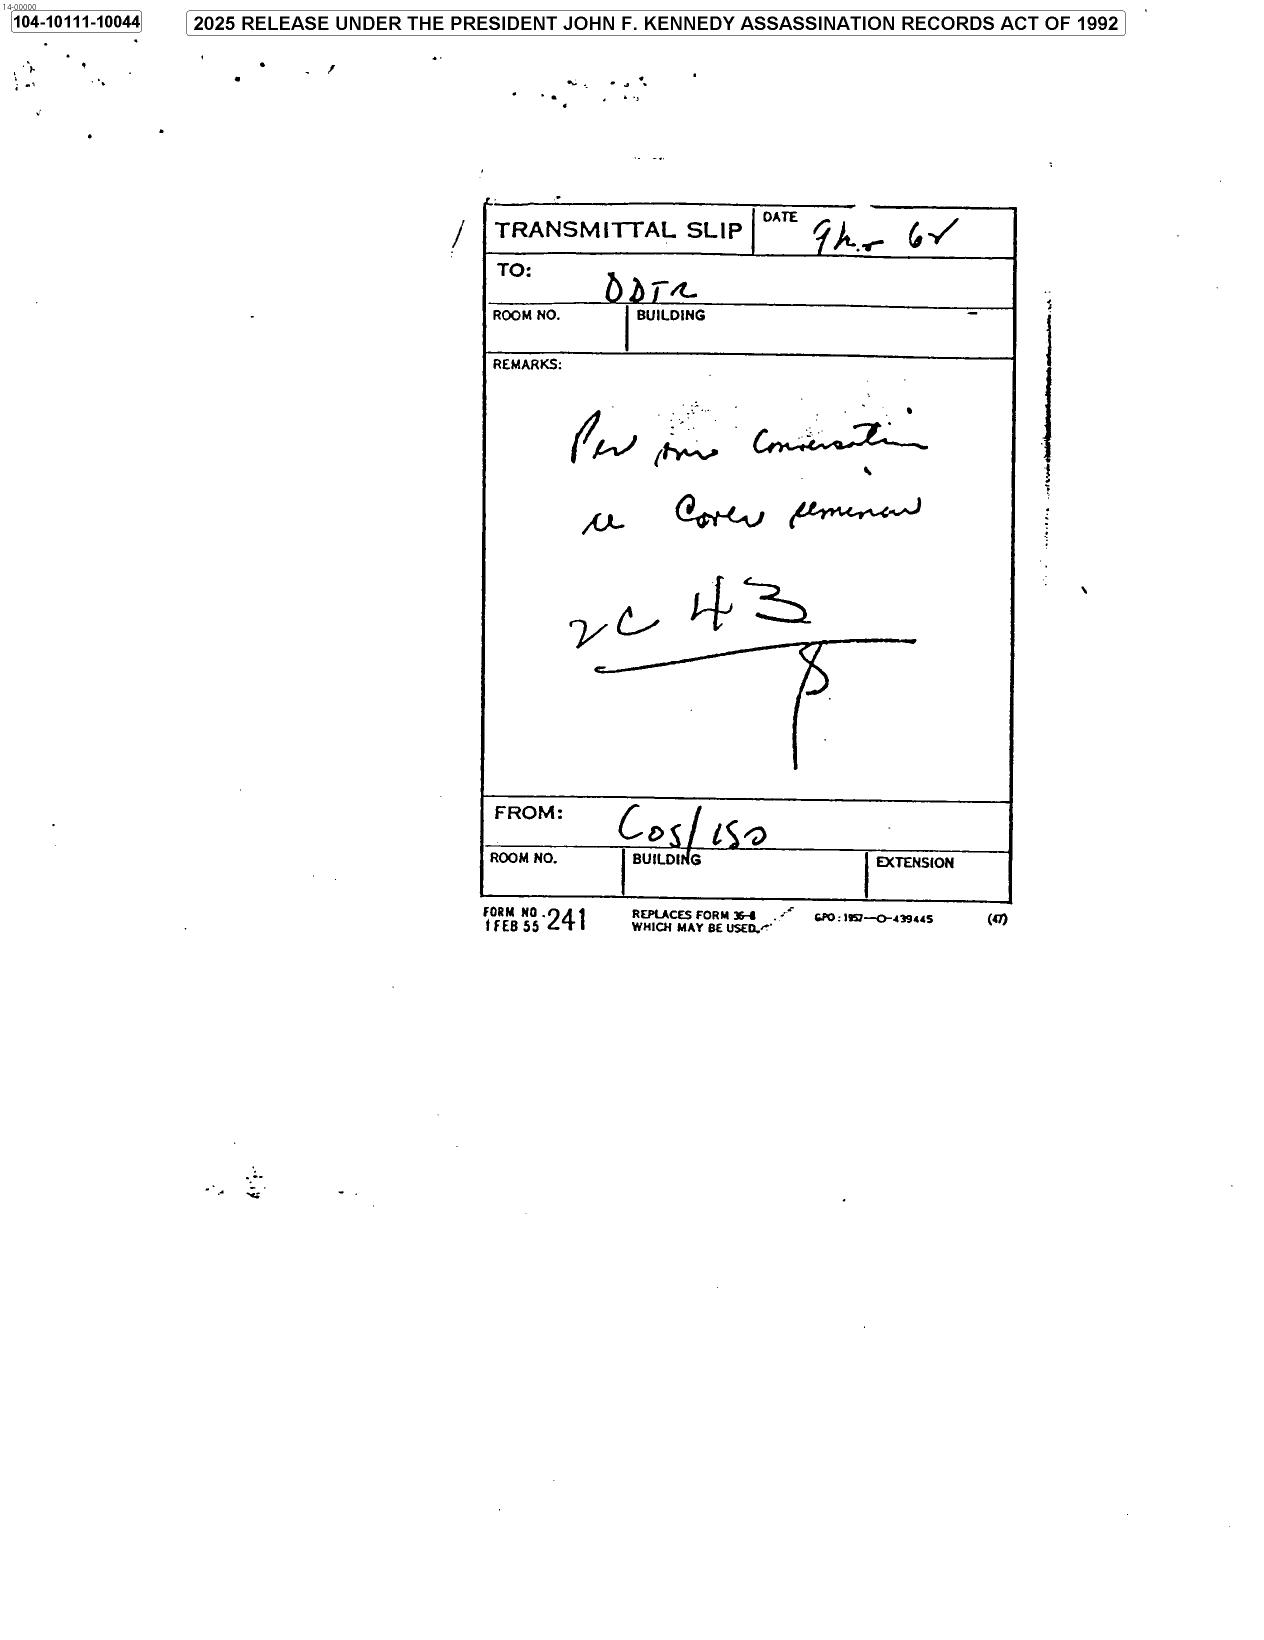 14-00000
104-10111-10044
2025 RELEASE UNDER THE PRESIDENT JOHN F. KENNEDY ASSASSINATION RECORDS ACT OF 1992
TRANSMITTAL SLIP
DATE
TO:
DDTR
ROOM NO.
BUILDING
REMARKS:
Per our Conversation
re Cover seminar
2C 43
FROM:
COS/ISO
ROOM NO.
BUILDING
EXTENSION
FORM NO. 241
1 FEB 55
REPLACES FORM 36-8
WHICH MAY BE USED.
GPO: 1957—O-439445
(47)